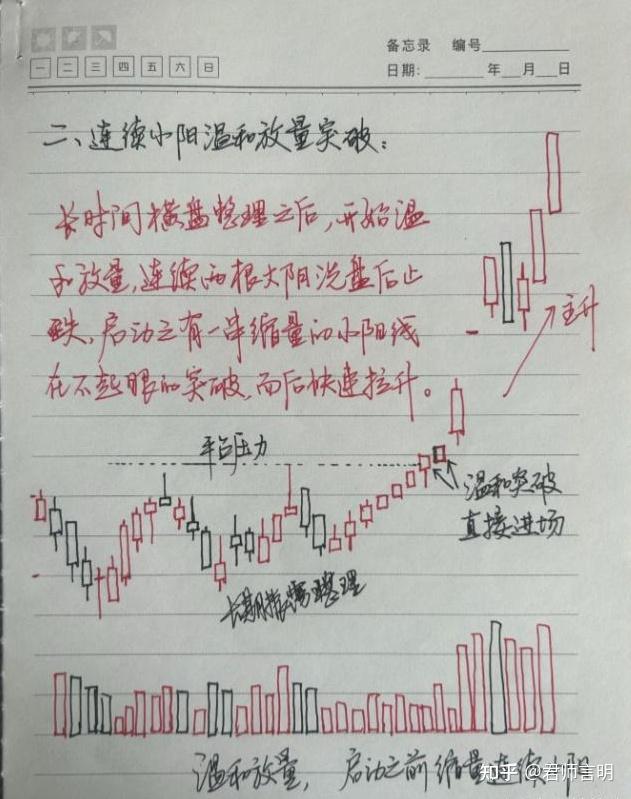 备忘录 编号
一 二 三 四 五 六 日
日期: 年 月 日
二、连续小阳温和放量突破:
长时间横盘整理之后,开始温
和放量,连续两根大阳洗盘后止
跌,启动之有一串缩量的小阳线
在不起眼的突破,而后快速拉升。
主升
平台压力
温和突破
直接进场
长期横盘整理
温和放量, 启动之前缩量连续小阳
知乎 @君师言明